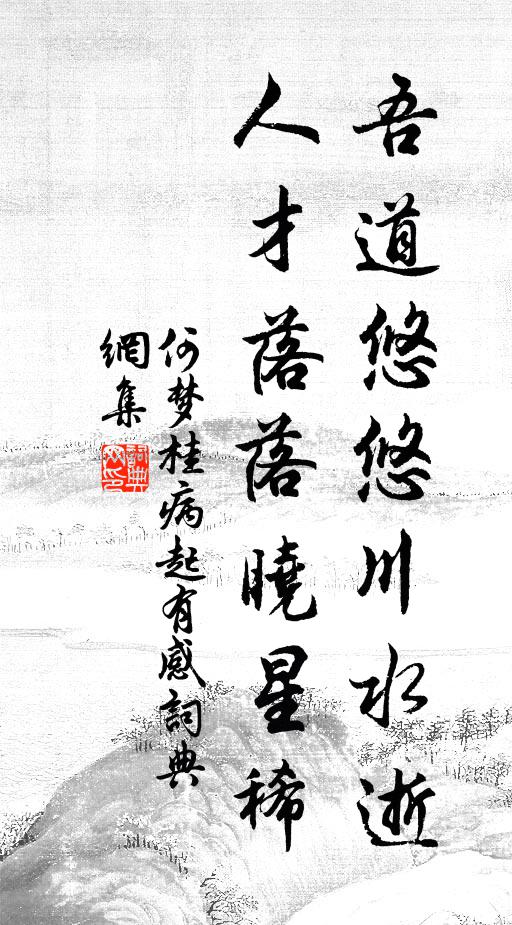 吾道悠悠川水逝
人才落落曉星稀
何梦桂病起有感詞典
網集
詞典
网印